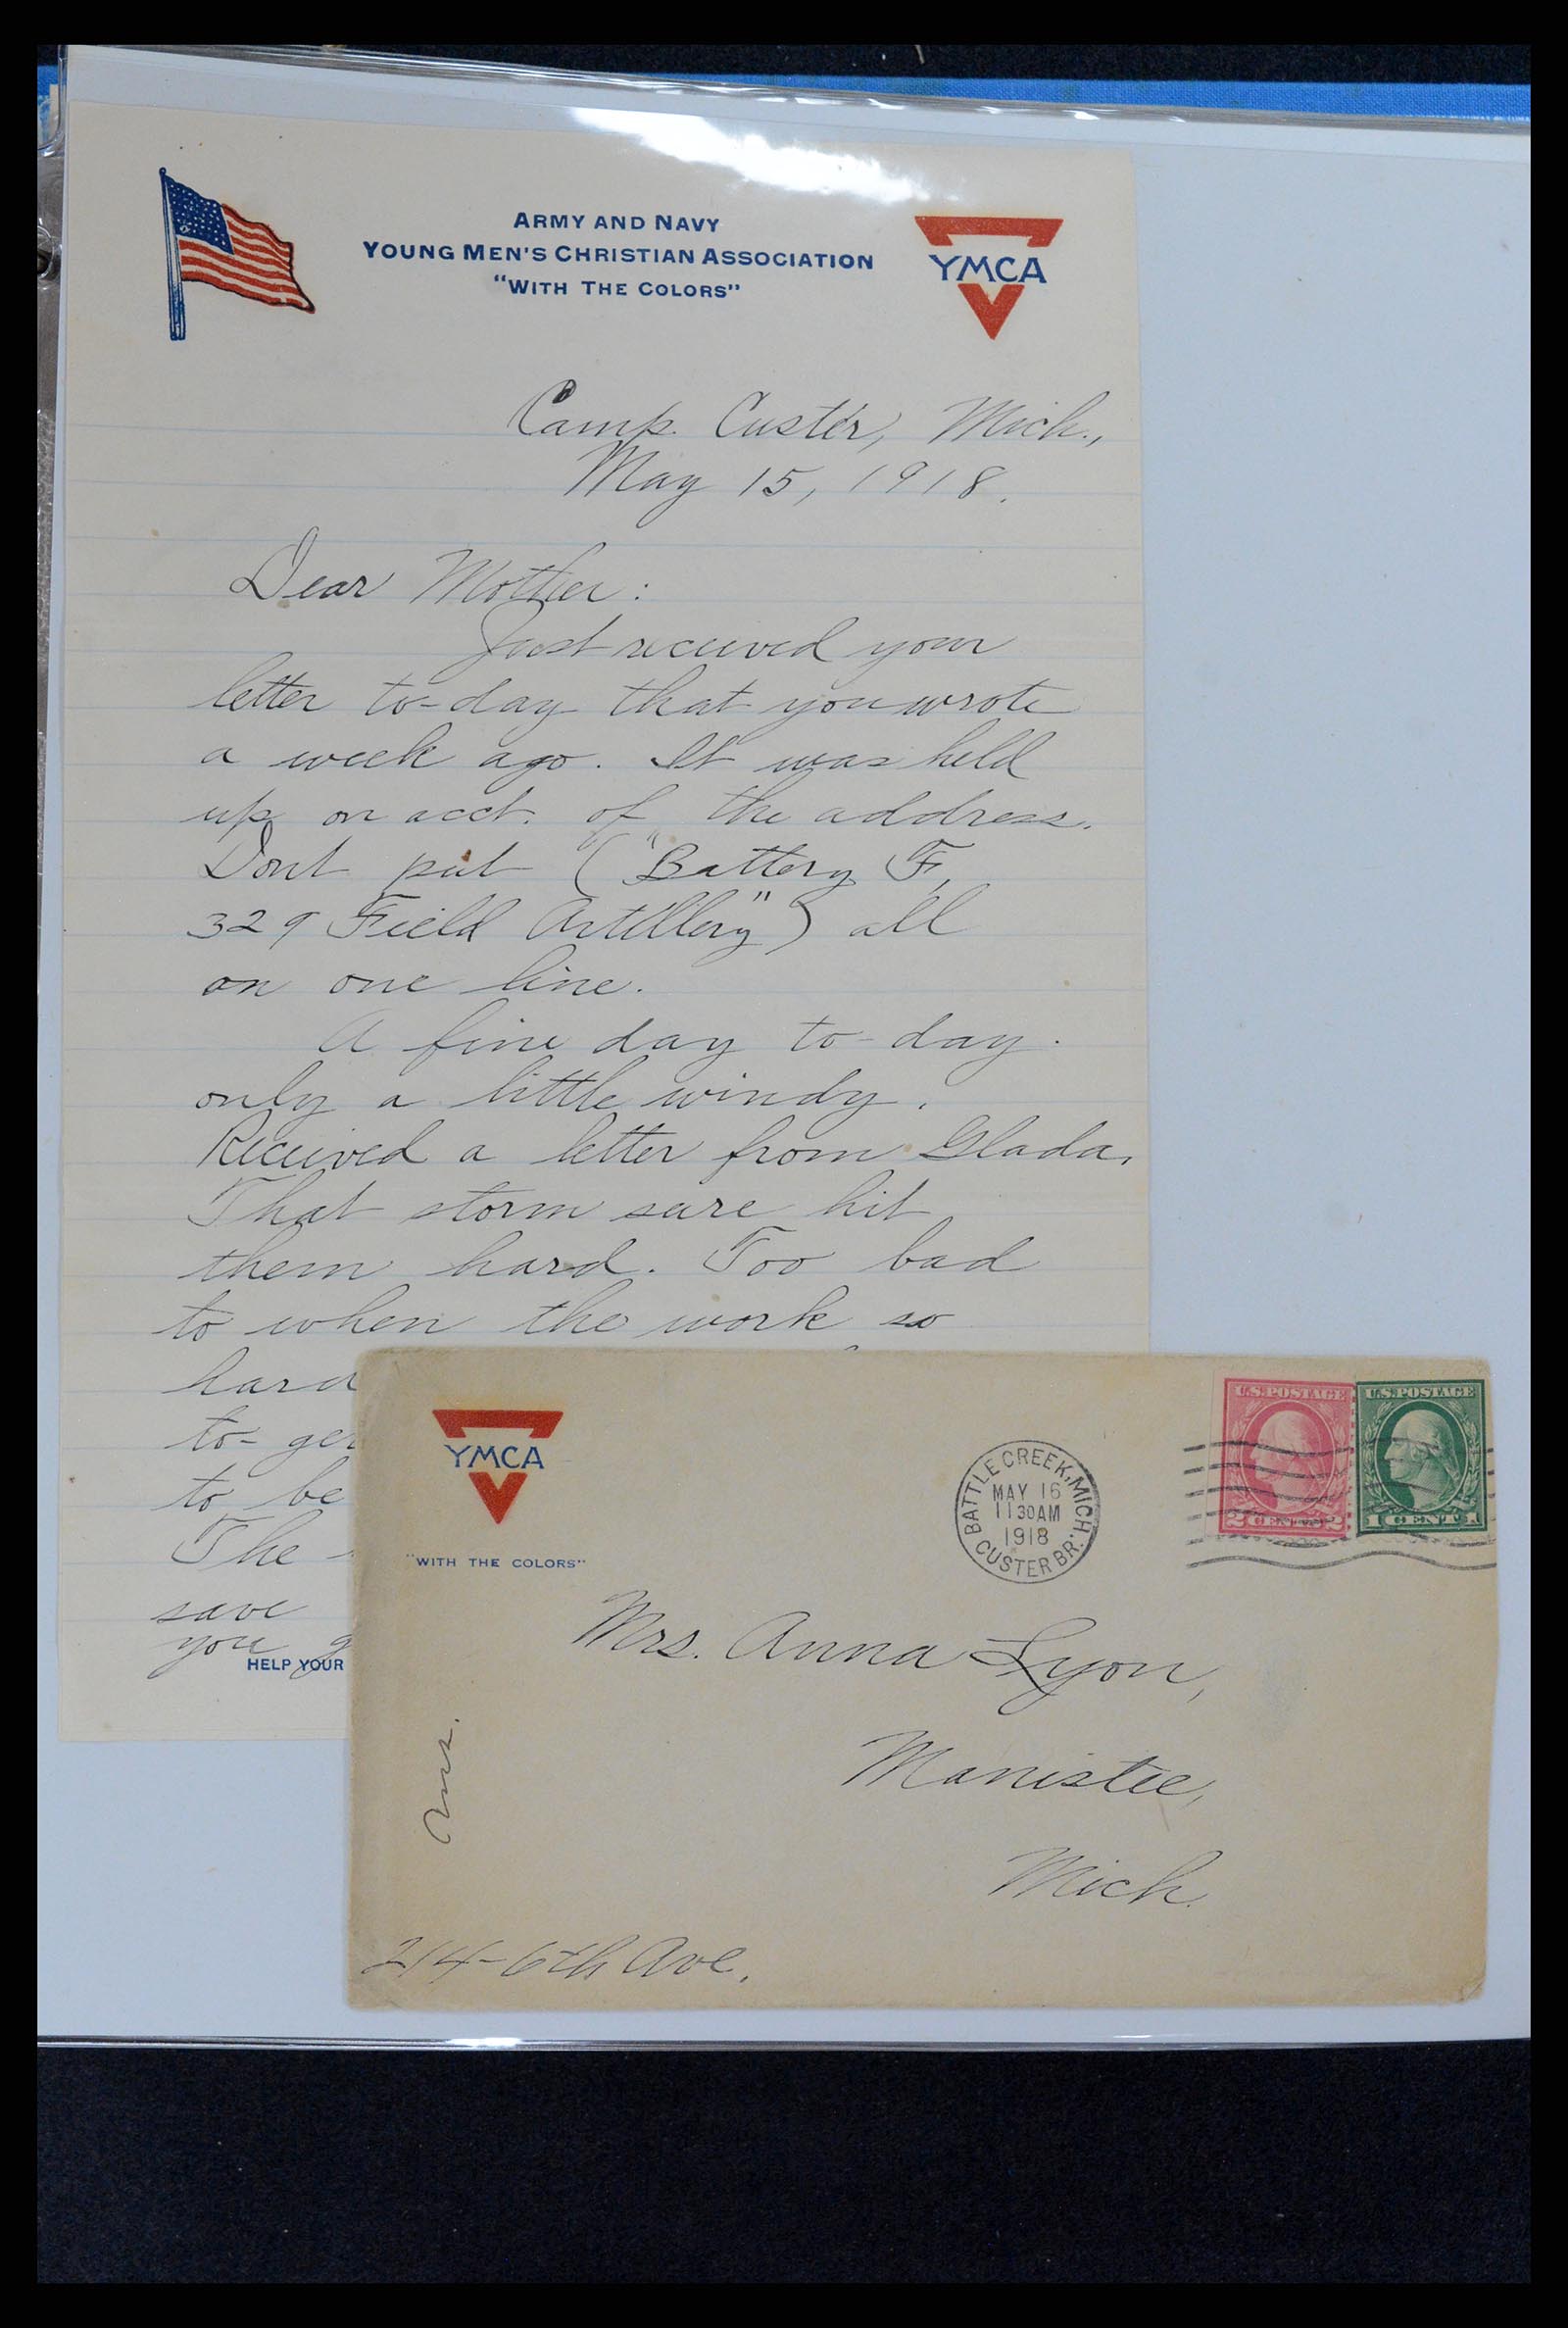 ARMY AND NAVY
YOUNG MEN'S CHRISTIAN ASSOCIATION
"WITH THE COLORS"
YMCA
Camp Custer, Mich.,
May 15, 1918.
Dear Mother:
Just received your
letter to-day that you wrote
a week ago. It was held
up on acct. of the address.
Dont put ("Battery F,
329 Field Artillery") all
on one line.
A fine day to-day.
only a little windy.
Received a letter from Glada.
That storm sure hit
them hard. Too bad
to when the work so
hard
to-
to be
The
save
you
HELP YOUR
YMCA
"WITH THE COLORS"
BATTLE CREEK, MICH.
MAY 16
11 30AM
1918
CUSTER BR.
U.S. POSTAGE
2 CENTS 2
U.S. POSTAGE
1 CENT 1
Mrs. Anna Lyon,
Manistee,
Mich.
Ans.
214-6th Ave.